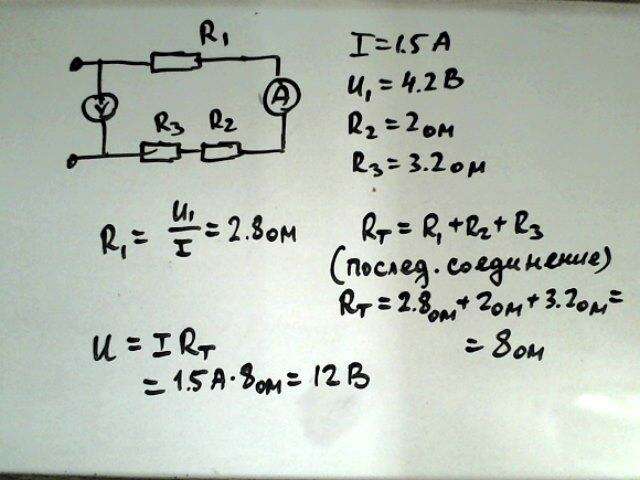 R₁
A
V
R₃ R₂
I = 1.5 А
U₁ = 4.2 В
R₂ = 2 ом
R₃ = 3.2 ом
R₁ = U₁/I = 2.8 ом
Rт = R₁ + R₂ + R₃
(послед. соединение)
Rт = 2.8 ом + 2 ом + 3.2 ом =
= 8 ом
U = I Rт
= 1.5 А · 8 ом = 12 В